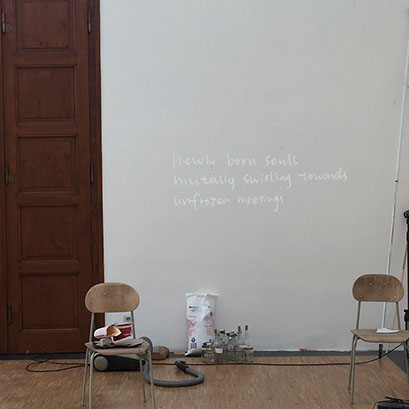 newly born souls
mutally swirling towards
unfrozen meetings